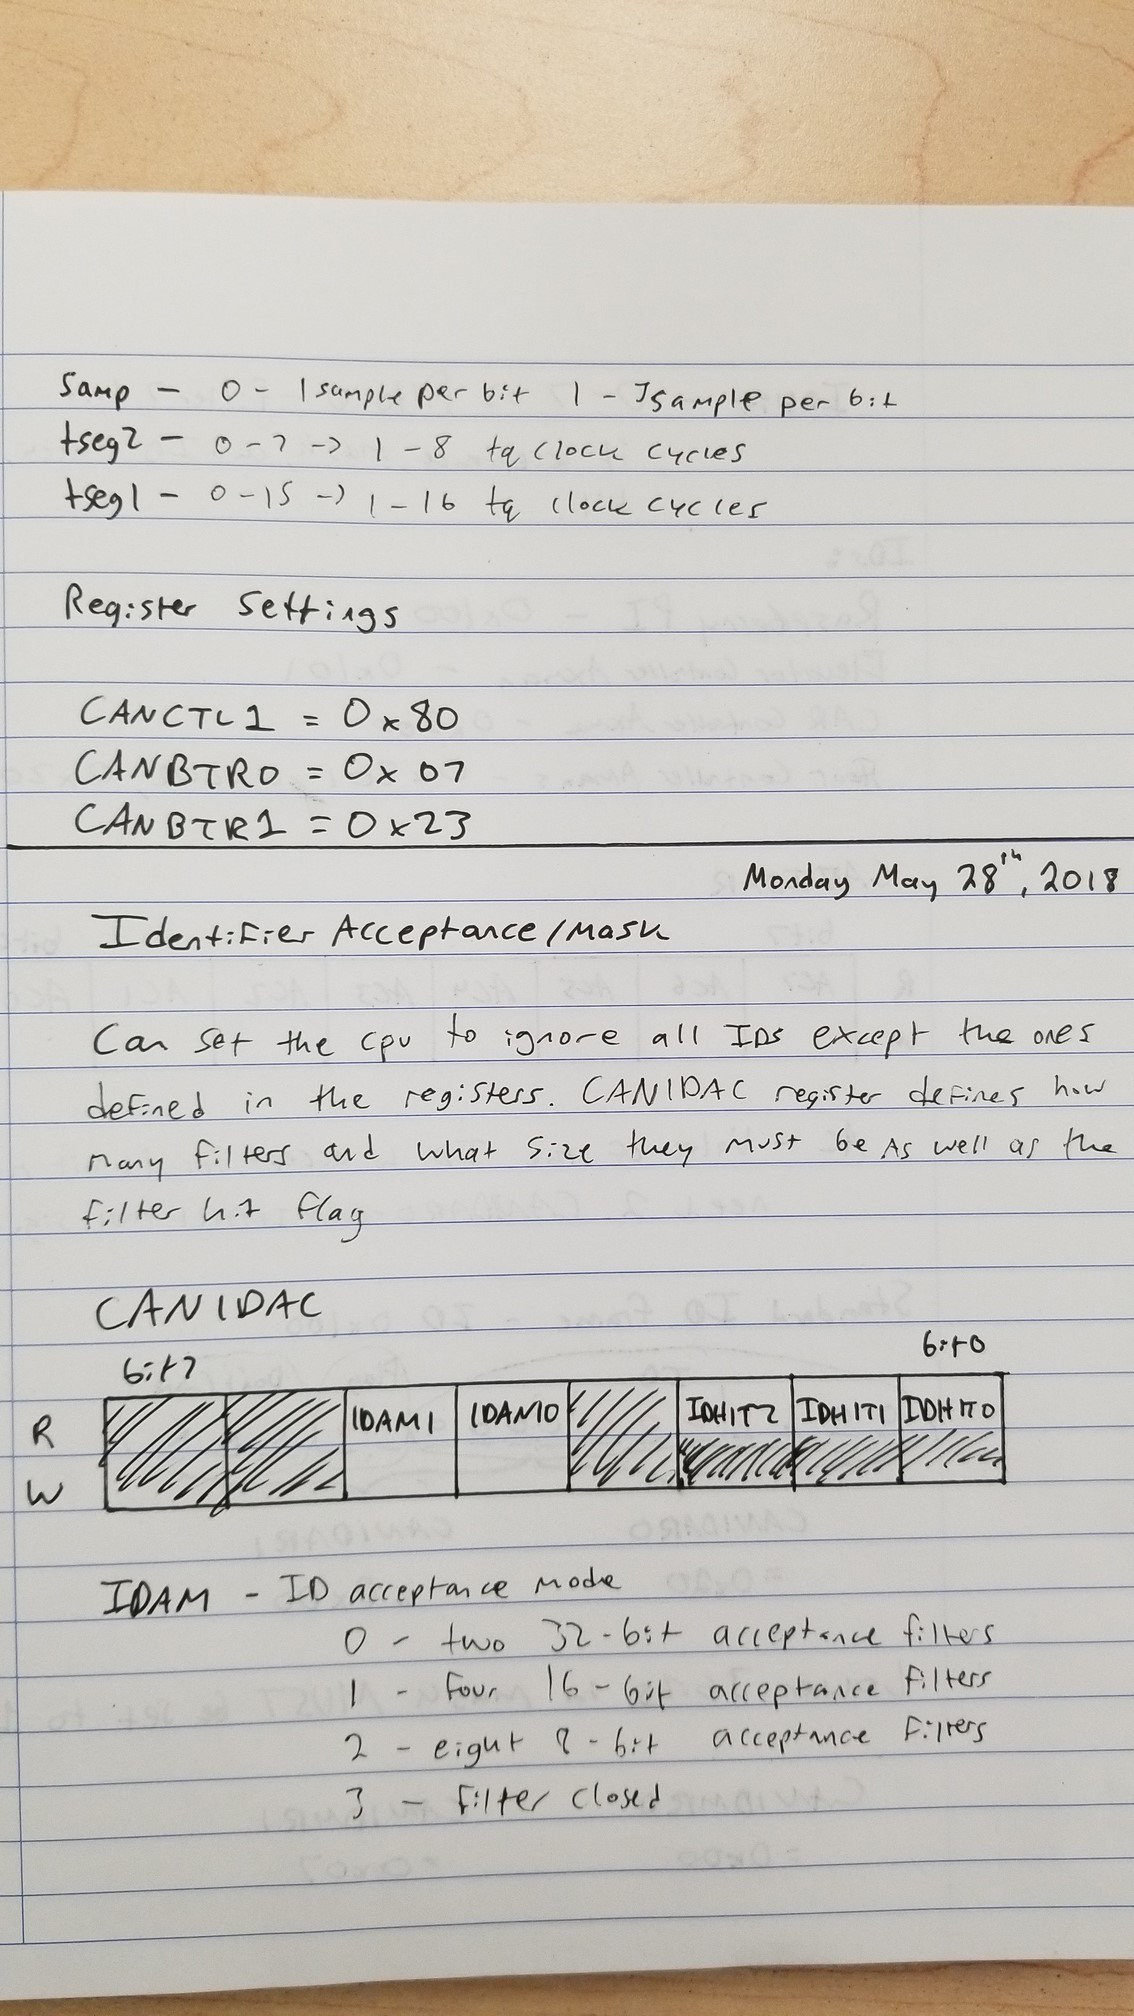 Samp - 0 - 1 sample per bit 1 - 3 sample per bit
tseg2 - 0-7 -> 1-8 tq clock cycles
tseg1 - 0-15 -> 1-16 tq clock cycles
Register Settings
CANCTL1 = 0x80
CANBTR0 = 0x07
CANBTR1 = 0x23
Monday May 28th, 2018
Identifier Acceptance/Mask
Can set the cpu to ignore all IDs except the ones
defined in the registers. CANIDAC register defines how
many filters and what size they must be As well as the
filter hit flag
CANIDAC
bit7 bit0
R IDAM1 IDAM0 IDHIT2 IDHIT1 IDHIT0
W
IDAM - ID acceptance mode
0 - two 32-bit acceptance filters
1 - four 16-bit acceptance filters
2 - eight 8-bit acceptance filters
3 - filter closed